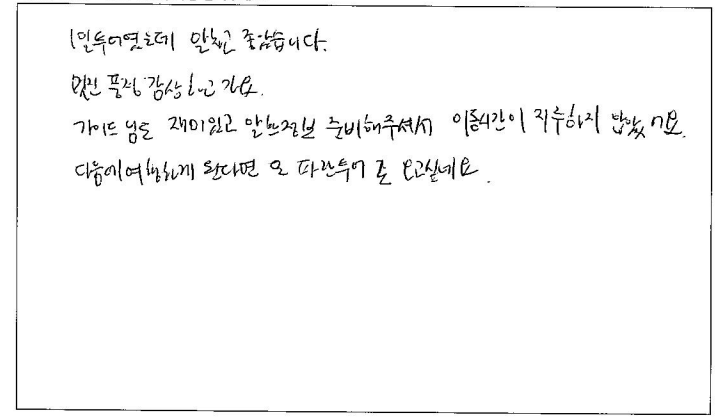 1일투어였는데 알차고 좋았습니다.
멋진 풍경 감상하고 가요.
가이드 님도 재미있고 알찬정보 준비해주셔서 이동시간이 지루하지 않았어요.
다음에여행하게 된다면 또 파란투어 로 오고싶네요.